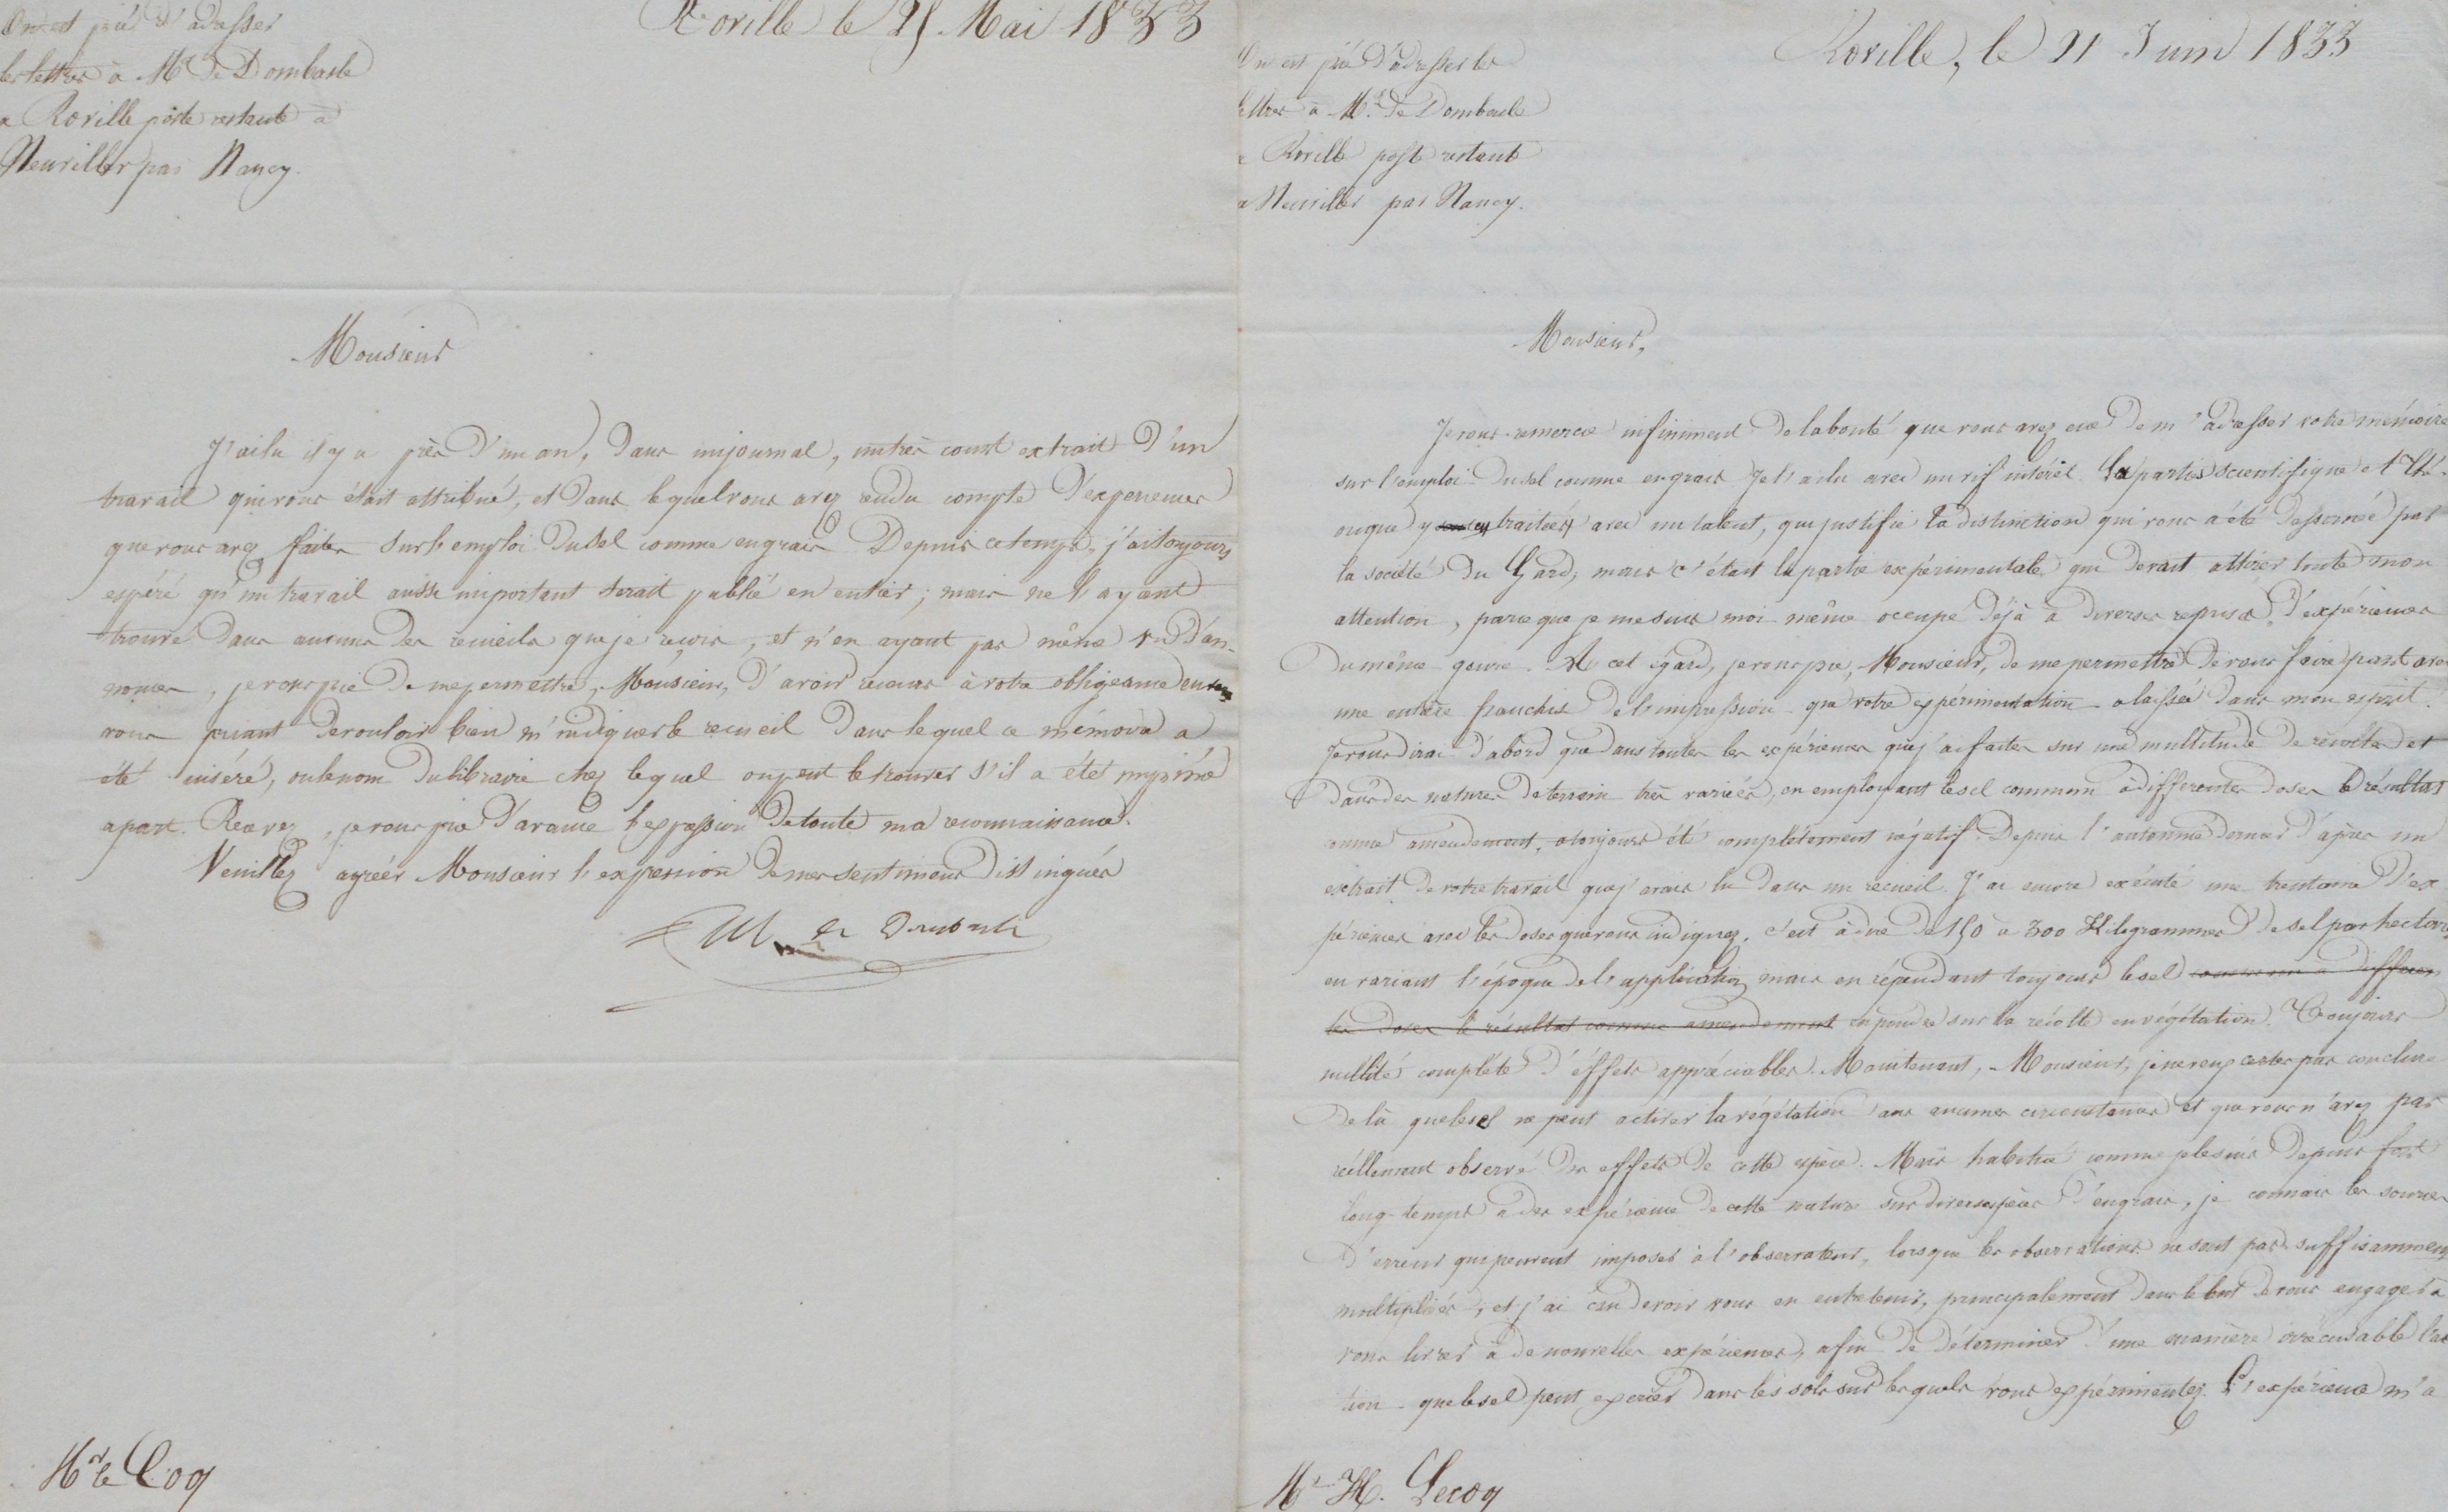 On est prié d'adresser
les lettres à Mr de Dombasle
a Roville poste restante à
Neuviller par Nancy.
Roville le 25 Mai 1833
Monsieur
J'ai lu il y a près d'un an, dans un journal, un très court extrait d'un
travail qui vous était attribué, et dans lequel vous avez rendu compte d'experiences
que vous avez faites sur l'emploi du sel comme engrais Depuis ce temps, j'ai toujours
espéré qu'un travail aussi important serait publié en entier ; mais ne l'ayant
trouvé dans aucuns des recueils que je reçois, et n'en ayant pas même vu d'an-
nonces, je vous prie de me permettre, Monsieur, d'avoir recours à votre obligeance en
vous priant de vouloir bien m'indiquer le recueil dans lequel ce mémoire a
été inséré, ou le nom du libraire chez lequel on peut le trouver s'il a été imprimé
apart. Recevez, je vous prie d'avance l'expression de toute ma reconnaissance.
Veuillez agréer Monsieur l'expression de mes sentimens distingués
M de Dombasle
Mr le Coq
On est prié d'adresser les
lettres à Mr. de Dombasle
a Roville poste restante
a Neuviller par Nancy.
Roville, le 21 Juin 1833
Monsieur,
Je vous remercie infiniment de la bonté que vous avez eue de m'adresser votre mémoire
sur l'emploi du sel comme engrais Je l'ai lu avec un vif intérêt. La partie scientifique et thé-
orique y traitées avec un talent, qui justifie la distinction qui vous a été décernée par
la société du Gard, mais c'était la partie expérimentale qui devait attirer toute mon
attention, parce que je me suis moi-même occupé déjà à diverses reprises, d'expériences
du même genre. A cet égard, je vous prie, Monsieur, de me permettre de vous faire part avec
une entière franchise de l'impression que votre expérimentation a laissée dans mon esprit.
Je vous dirai d'abord que dans toutes les expériences que j'ai faites sur une multitude de récoltes et
dans des natures de terrain très variées, en employant le sel commun à differentes doses le résultat
comme amendement, a toujours été complètement négatif. Depuis l'automne dernier d'après un
extrait de votre travail que j'avais lu dans un recueil. J'ai encore exécuté une trentaine d'ex
périences avec les doses que vous indiquez, c'est à dire de 150 a 300 Kilogrammes de sel par hectare
en variant l'époque de l'application mais en répandant toujours le sel commun a differen
tes doses le résultat comme amendement en poudre sur la récolte en végétation. Toujours
nullité complète d'éffets appréciables. Maintenant, Monsieur, je ne veux certes pas conclure
de là que le sel ne peut activer la végétation dans aucunes circonstances et que vous n'avez pas
réellement observé des effets de cette espèce. Mais habitué comme je le suis depuis fort
long-temps a des expérience de cette nature sur diverses espèces d'engrais, je connais les sources
d'erreur que peuvent imposer à l'observateur, lorsque les observations ne sont pas suffisamment
multipliées ; et j'ai cru devoir vous en entretenir, principalement dans le but de vous engager a
vous livrer à de nouvelles expériences, afin de déterminer d'une manière irrécusable l'ac
tion que le sel peut exercer dans les sols sur lesquels vous expérimentez. L'expérience m'a
Mr H. Lecoq